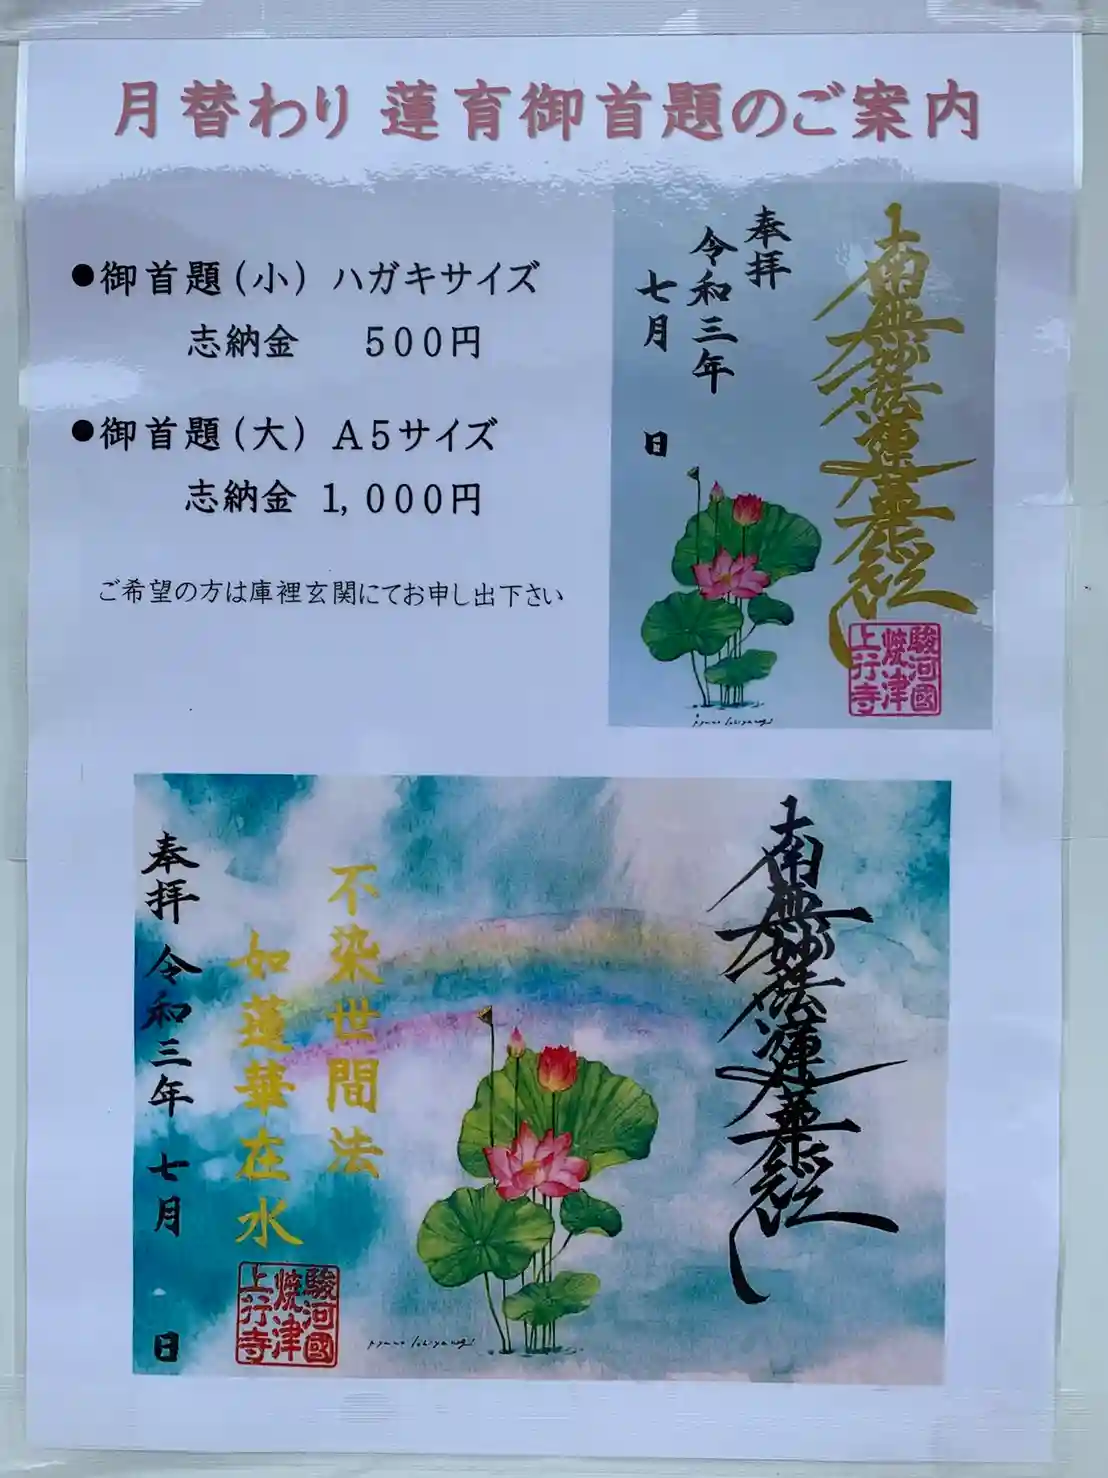 月替わり 蓮育御首題のご案内
●御首題(小) ハガキサイズ
志納金 500円
●御首題(大) A5サイズ
志納金 1,000円
ご希望の方は庫裡玄関にてお申し出下さい
南無妙法蓮華経
奉拝
令和三年
七月 日
駿河國
焼津
上行寺
南無妙法蓮華経
不染世間法
如蓮華在水
奉拝 令和三年 七月 日
駿河國
焼津
上行寺